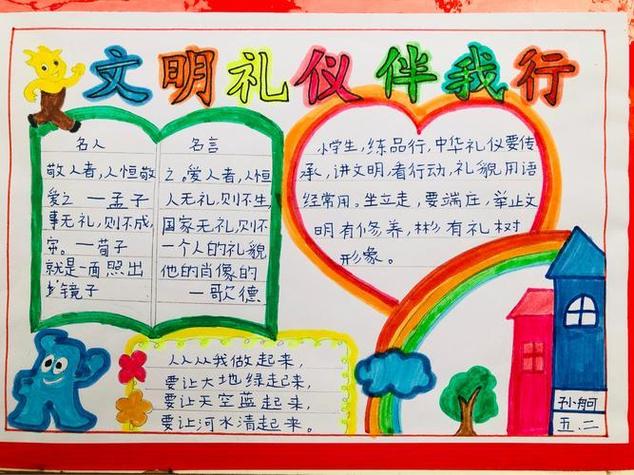 文明礼仪伴我行
名人
敬人者,人恒敬
爱之 一孟子
事无礼,则不成,
一荀子
就是一面照出
镜子
名言
之。爱人者,人恒
人无礼,则不生,
国家无礼,则不
一个人的礼貌
他的肖像的
一歌德
小学生,练品行,中华礼仪要传
承,讲文明,看行动,礼貌用语
经常用。坐立走,要端庄,举止文
明有修养,彬彬有礼树
形象。
从从从我做起来,
要让大地绿起来,
要让天空蓝起来,
要让河水清起来。
孙舸
五.二